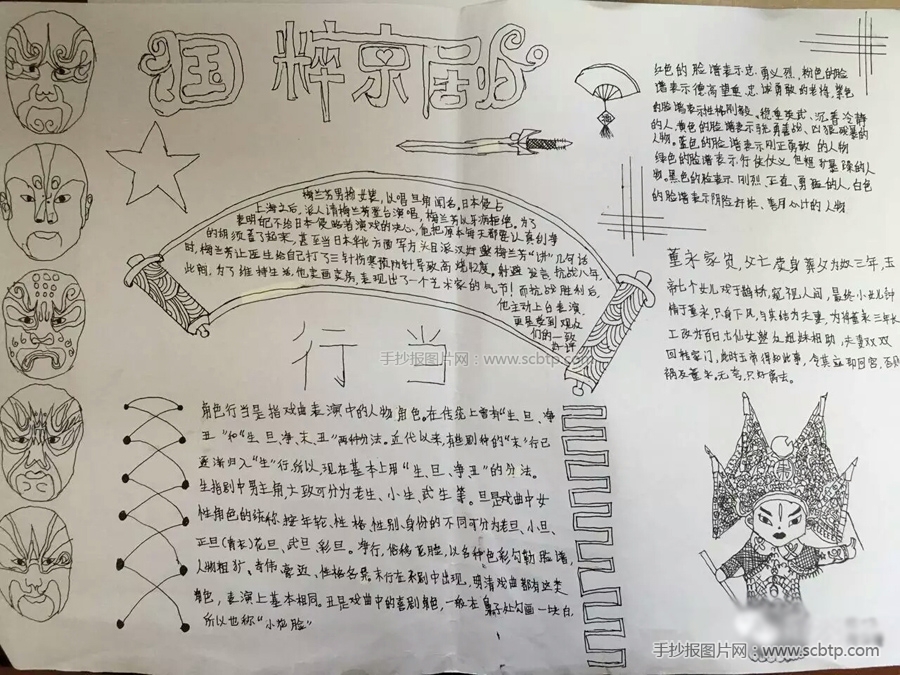 国粹京剧
梅兰芳男扮女装,以唱旦角闻名。日本侵占
上海之后,派人请梅兰芳登台演唱,梅兰芳以牙病拒绝。为了
表明绝不给日本侵略者演戏的决心,他把原本每天都要认真剃净
的胡须蓄了起来,甚至当日本华北方面军方头目派汉奸逼梅兰芳"讲"几句话
时,梅兰芳让医生给自己打了三针伤寒预防针,导致高烧
此期,为了维持生活,他卖画卖房,表现出了一个艺术家的气节!而抗战胜利后,
他主动上台表演,
更是受到观众
们的一致
好评
红色的脸谱表示忠勇义烈,粉色的脸
谱表示德高望重忠诚勇敢的老将,紫色
的脸谱表示性格刚毅。稳重英武、沉着冷静
的人,黄色的脸谱表示骁勇善战、凶狠残暴的
人物。蓝色的脸谱表示刚正勇敢的人物
绿色的脸谱表示行侠仗义但粗犷暴躁的人
物。黑色的脸表示刚烈、正直、勇猛的人,白色
的脸谱表示阴险奸诈、善用心计的人物
董永家贫,父亡卖身葬父为奴三年,玉
帝七个女儿戏于鹊桥,窥视人间,最终小女儿钟
情于董永,只身下凡,与其结为夫妻,为将董永三年长
工改为百日,七仙女邀众姐妹相助,夫妻双双
回转家门,此时玉帝得知此事,令其立即回宫,否则
祸及董永,无奈,只好离去。
行当
手抄报图片网:www.scbtp.com
角色行当是指戏曲表演中的人物角色。在传统上曾有"生、旦、净
丑"和"生、旦、净、末、丑"两种分法。近代以来,有些剧种的"末"行已
逐渐归入"生"行,所以,现在基本上用"生、旦、净、丑"的分法。
生指剧中男主角,大致可分为老生、小生、武生等。旦是戏曲中女
性角色的统称,按年轮、性格、性别、身份的不同可分为老旦、小旦、
正旦(青衣)花旦、武旦、彩旦。净行,俗称花脸,以各种色彩勾勒脸谱,
人物粗犷、奇伟、豪迈、性格各异。末行在京剧中出现,明清戏曲都有这类
角色,表演上基本相同。丑是戏曲中的喜剧角色,一般在鼻子处勾画一块白,
所以也称"小花脸"
手抄报图片网:www.scbtp.com